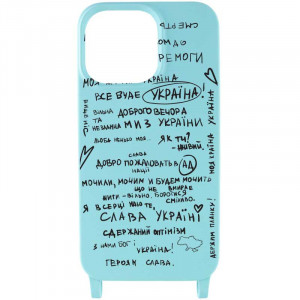 СМЕРТЬ
ПЕРЕМОГИ
МОЯ УКРАЇНА
УКРАЇНА
ВСЕ БУДЕ УКРАЇНА!
ВІЛЬНА ТА НЕЗАЛЕЖНА
ДОБРОГО ВЕЧОРА
МИ З УКРАЇНИ
ЯК ТИ?
СЛАВА НАЦІЇ
ДОБРО ПОЖАЛОВАТЬ В АД
МОЯ КРАЇНА УКРАЇНА
МОЧИЛИ, МОЧИМ И БУДЕМ МОЧИТЬ
ЩО НЕ ВМИРАЄ
ЖИТИ - ВІЛЬНО, БОРОТИСЯ СМІЛИВО.
Я В СЕРЦІ
СЛАВА УКРАЇНІ
СДЕРЖАНИЙ ОПТИМІЗМ
З НАМИ БОГ І УКРАЇНА!
ГЕРОЯМ СЛАВА.
ДЕРЖИМ ПЛАНКУ!